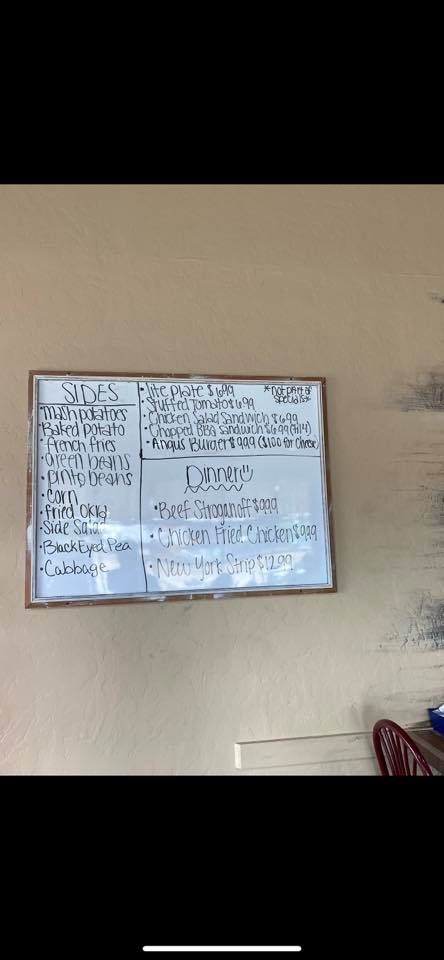 SIDES
•Mash potatoes
•Baked potato
•french fries
•green beans
•pinto beans
•corn
•Fried Okra
•Side Salad
•Black Eyed Pea
•Cabbage
•lite plate $6.99
*not part of specials*
•Stuffed Tomato $6.99
•Chicken Salad Sandwich $6.99
•Chopped BBQ Sandwich $6.99
•Angus Burger $9.99 ($1.00 for Cheese)
Dinner
•Beef Stroganoff $9.99
•Chicken Fried Chicken $9.99
•New York Strip $12.99